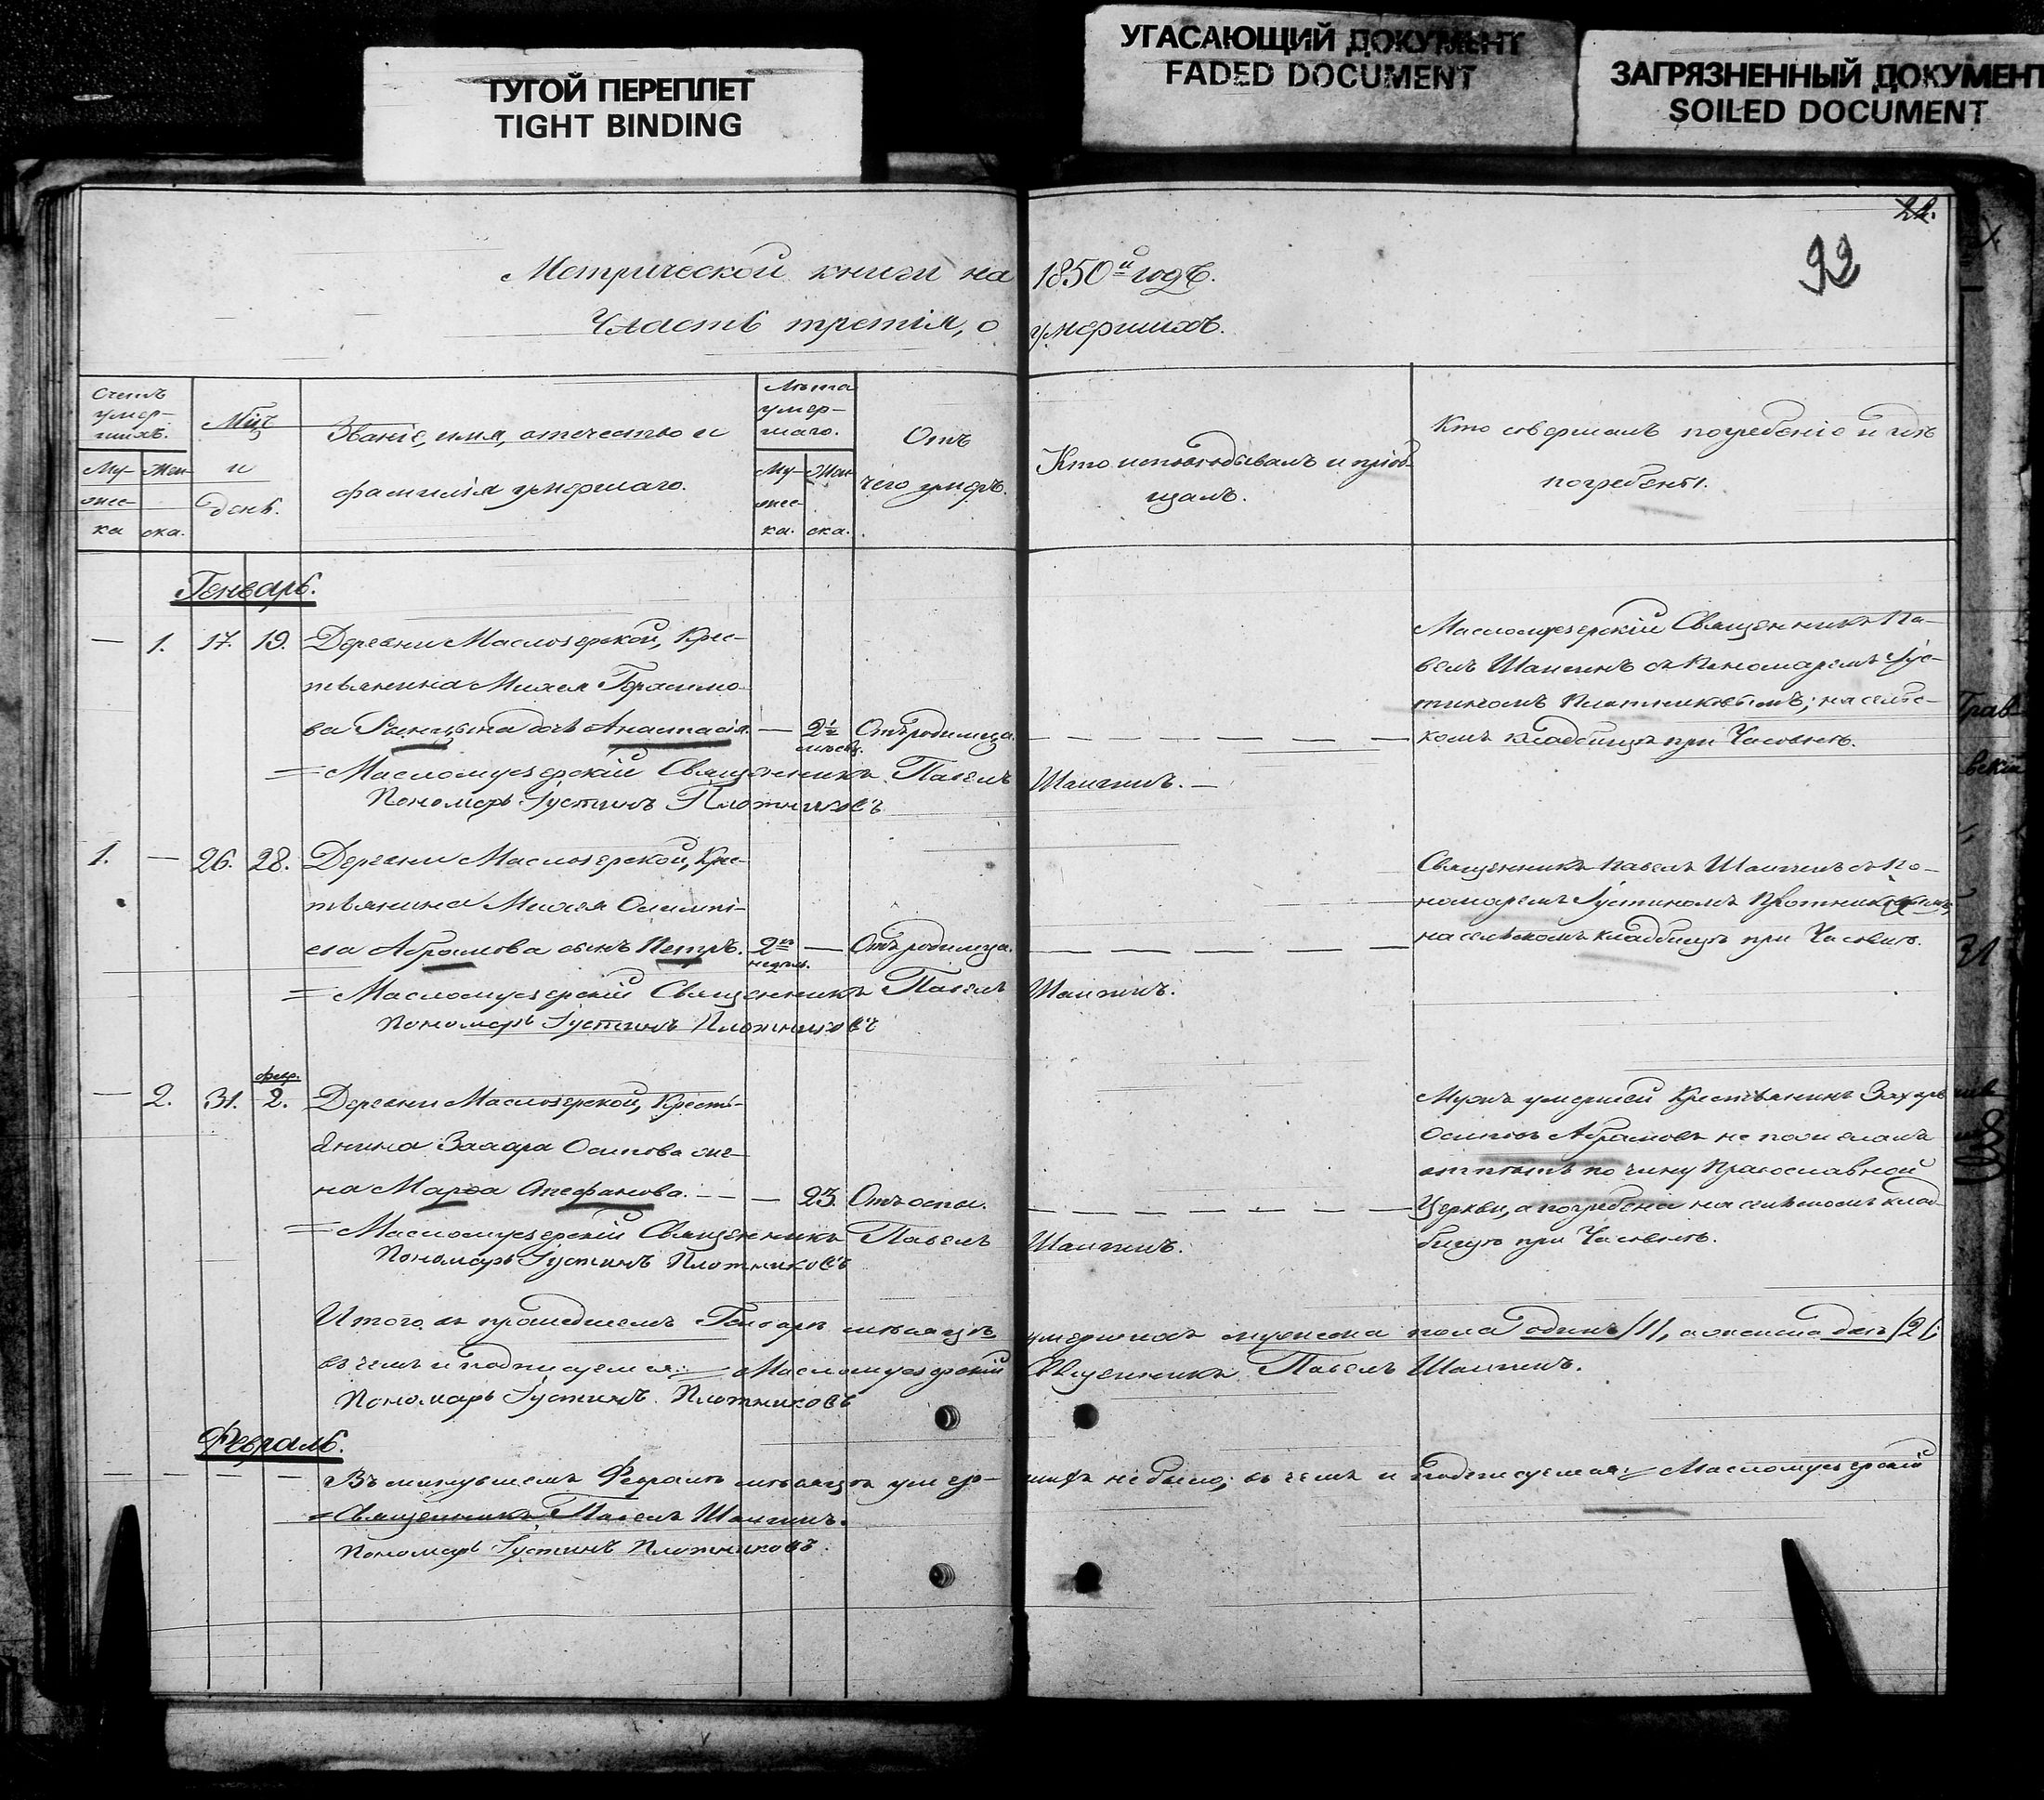 ТУГОЙ ПЕРЕПЛЕТ
TIGHT BINDING
УГАСАЮЩИЙ ДОКУМЕНТ
FADED DOCUMENT
ЗАГРЯЗНЕННЫЙ ДОКУМЕНТ
SOILED DOCUMENT
22.
92
Метрической книги на 1850й годъ.
Часть третія, о умершихъ.
Счетъ умер-шихъ.
Му-жес-ка
Жен-ска.
Мцъ и день.
Званіе, имя, отечество и фамилія умершаго.
Лѣта умер-шаго.
Му-жес-ка.
Жен-ска.
Отъ чего умеръ.
Кто исповѣдывалъ и пріоб-щалъ.
Кто совершалъ погребеніе и гдѣ погребены.
Генварь.
— 1. 17. 19. Деревни Маслозерской, Крес-
тьянина Михея Герасимо-
ва дочь Анастасія. — 2 Отъ родимца.
Масломуезерскій Священникъ Па-
велъ Шангинъ съ Пономаремъ Іус-
тиномъ Плотниковымъ; на сельс-
комъ кладбищѣ при Часовнѣ.
= Масломуезерскій Священникъ Павелъ Шангинъ. —
Пономарь Іустинъ Плотниковъ
1. — 26. 28. Деревни Маслозерской, Крес-
тьянина Михея Олимпі-
ева Абрамова сынъ Петръ. 2 недѣль. — Отъ родимца.
Священникъ Павелъ Шангинъ съ По-
номаремъ Іустиномъ Плотниковымъ;
на сельскомъ кладбищѣ при Часовнѣ.
= Масломуезерскій Священникъ Павелъ Шангинъ.
Пономарь Іустинъ Плотниковъ
— 2. 31. февр. 2. Деревни Маслозерской, Кресть-
янина Захара Осипова же-
на Марѳа Стефанова. — — 25. Отъ оспы.
Мужъ умершей Крестьянинъ Захаръ
Осиповъ Абрамовъ не пожелалъ
отпѣть по чину Православной
Церкви, а погребена на сельскомъ клад-
бищѣ при Часовнѣ.
= Масломуезерскій Священникъ Павелъ Шангинъ.
Пономарь Іустинъ Плотниковъ
Итого въ прошедшемъ Генварѣ мѣсяцѣ умершихъ мужеска пола одинъ /1/, а женска двѣ /2/;
въ чемъ и подписуемся: = Масломуезерскій Священникъ Павелъ Шангинъ.
Пономарь Іустинъ Плотниковъ
Февраль.
— — — — Въ минувшемъ Февралѣ мѣсяцѣ умер-шихъ не было; въ чемъ и подписуемся: = Масломуезерскій
= Священникъ Павелъ Шангинъ.
Пономарь Іустинъ Плотниковъ.